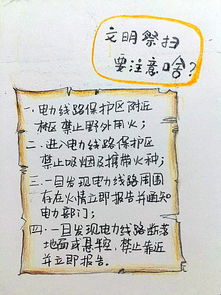 文明祭扫
要注意啥?
一.电力线路保护区附近
林区禁止野外用火;
二.进入电力线路保护区
禁止吸烟及携带火种;
三.一旦发现电力线路周围
存在火情立即报告并通知
电力部门;
四.一旦发现电力线路断落
地面或悬挂,禁止靠近
并立即报告。